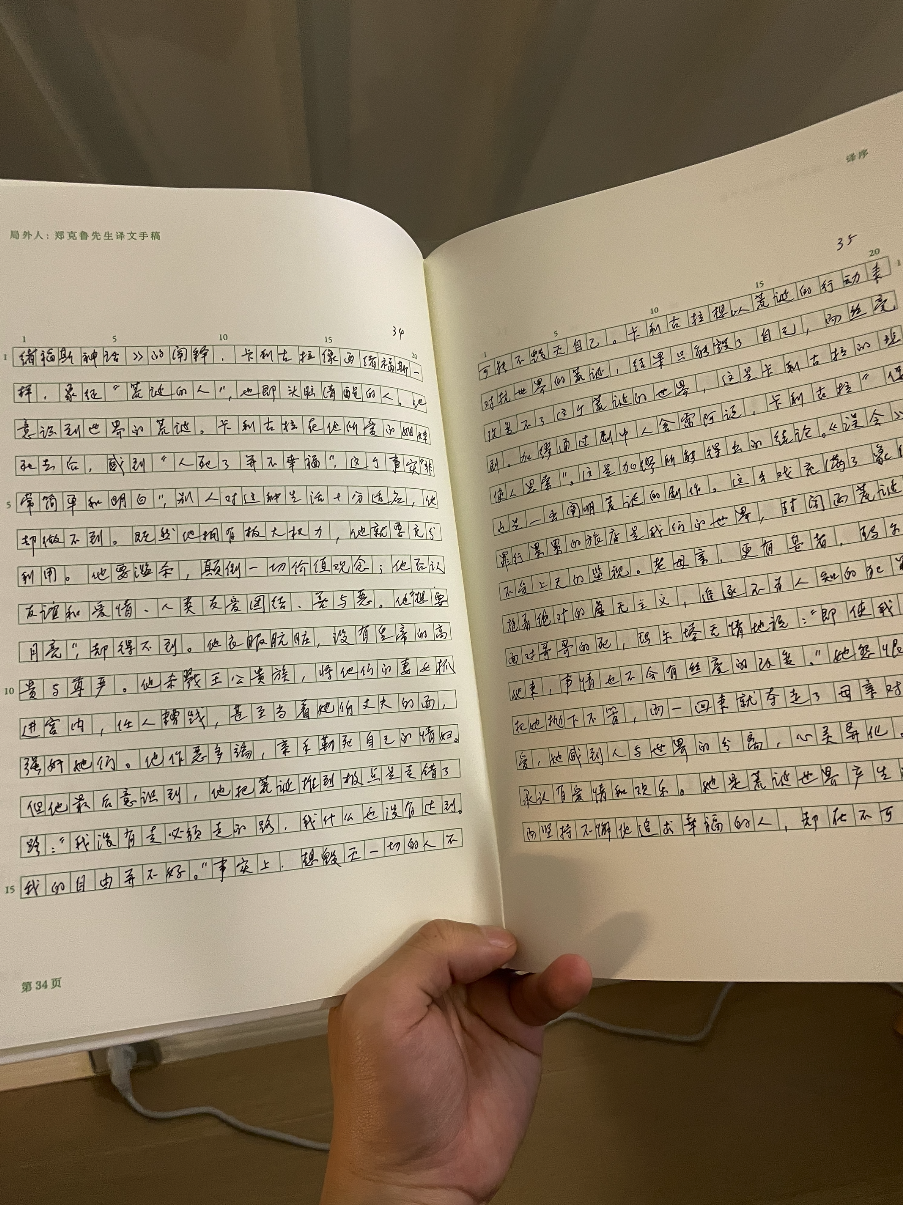 局外人：郑克鲁先生译文手稿
34
1 5 10 15 20
1 绪福斯神话》的阐释。卡利古拉像西绪福斯一
样，象征“荒诞的人”，也即头脑清醒的人。他
意识到世界的荒诞。卡利古拉在他所爱的
死去后，感到“人死了并不幸福”。这个事实“非
5 常简单和明白”，别人对这种生活十分适应，他
却做不到。既然他拥有极大权力，他就要充分
利用。他要滥杀，颠倒一切价值观念；他否认
友谊和爱情、人类友爱团结、善与恶。他“想要
月亮”，却得不到。他衣服肮脏，没有皇帝的高
10 贵与尊严。他杀戮王公贵族，将他们的妻女抓
进宫内，任人蹂躏，甚至当着她们丈夫的面，
强奸她们。他作恶多端，亲手勒死自己的情妇。
但他最后意识到，他把荒诞推到极点是走错了
路：“我没有走必须走的路，我什么也没有达到。
15 我的自由并不好。”事实上，想毁灭一切的人不
第34页
译序
35
1 5 10 15 20
1
可能不毁灭自己。卡利古拉想以荒诞的行动来
对抗世界的荒诞，结果只能毁了自己，而丝毫
改变不了这个荒诞的世界，这是卡利古拉的悲
剧。加缪通过剧中人舍雷阿说，卡利古拉“促
使人思索”。这是加缪所能得出的结论。《误会》
也是一出阐明荒诞的剧作。这出戏充满了象
罪行累累的旅店是我们的世界，封闭而荒诞
不受上天的监视。老母亲，更有甚者，玛尔
抱着绝对的虚无主义，追逐不为人知的犯罪
面对哥哥的死，玛尔塔无情地说：“即使我
他来，事情也不会有丝毫的改变。”她怨恨
把她抛下不管，而一回来就夺走了母亲对
爱，她感到人与世界的分离，心灵异化。
承认有爱情和欢乐。她是荒诞世界产生
而坚持不懈地追求幸福的人，却在不可